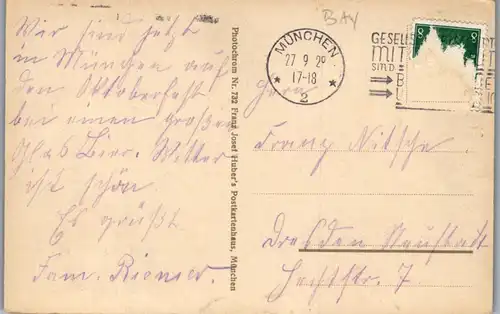 Wir sind jetzt
in München auf
den Oktoberfest
bei einen großen
Glas Bier. Wetter
ist schön
Es grüßt
Fam. Riemer.
Photochrom Nr. 732 Franz Josef Huber's Postkartenhaus, München
BAY
MÜNCHEN
27 9 29
17-18
* 2 *
GESELL
MIT
SIND
8 8
Herrn
Franz Nitsche
Dresden Neustadt
Hechtstr. 7